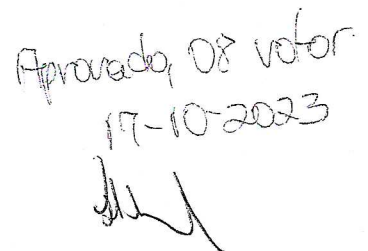 Aprovado, 08 votos
17-10-2023